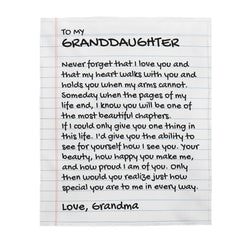 TO MY
GRANDDAUGHTER
Never forget that I love you and
that my heart walks with you and
holds you when my arms cannot.
Someday when the pages of my
life end, I know you will be one of
the most beautiful chapters.
If I could only give you one thing in
this life. I'd give you the ability to
see for yourself how I see you. Your
beauty, how happy you make me,
and how proud I am of you. Only
then would you realize just how
special you are to me in every way.
Love, Grandma